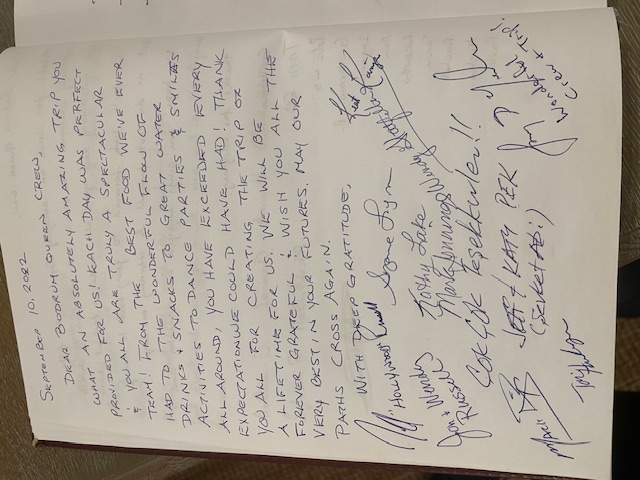 SEPTEMBER 10, 2022
DEAR BODRUM QUEEN CREW,
WHAT AN ABSOLUTELY AMAZING TRIP YOU
PROVIDED FOR US! EACH DAY WAS PERFECT
& YOU ALL ARE TRULY A SPECTACULAR
TEAM! FROM THE BEST FOOD WE'VE EVER
HAD TO THE WONDERFUL FLOW OF
DRINKS & SNACKS TO GREAT WATER
ACTIVITIES TO DANCE PARTIES & SMILES
ALL AROUND, YOU HAVE EXCEEDED EVERY
EXPECTATION WE COULD HAVE HAD! THANK
YOU ALL FOR CREATING THE TRIP OF
A LIFETIME FOR US. WE WILL BE
FOREVER GRATEFUL & WISH YOU ALL THE
VERY BEST IN YOUR FUTURES. MAY OUR
PATHS CROSS AGAIN.
WITH DEEP GRATITUDE,
HOLLYWOOD Russell
Jon & Wendy
Russell
Kathy Lake
ÇOK ÇOK TEŞEKKÜRLER!!
JEFF & KATY PEK
(SEVKET ABI :)
Wonderful
Crew & Trip!